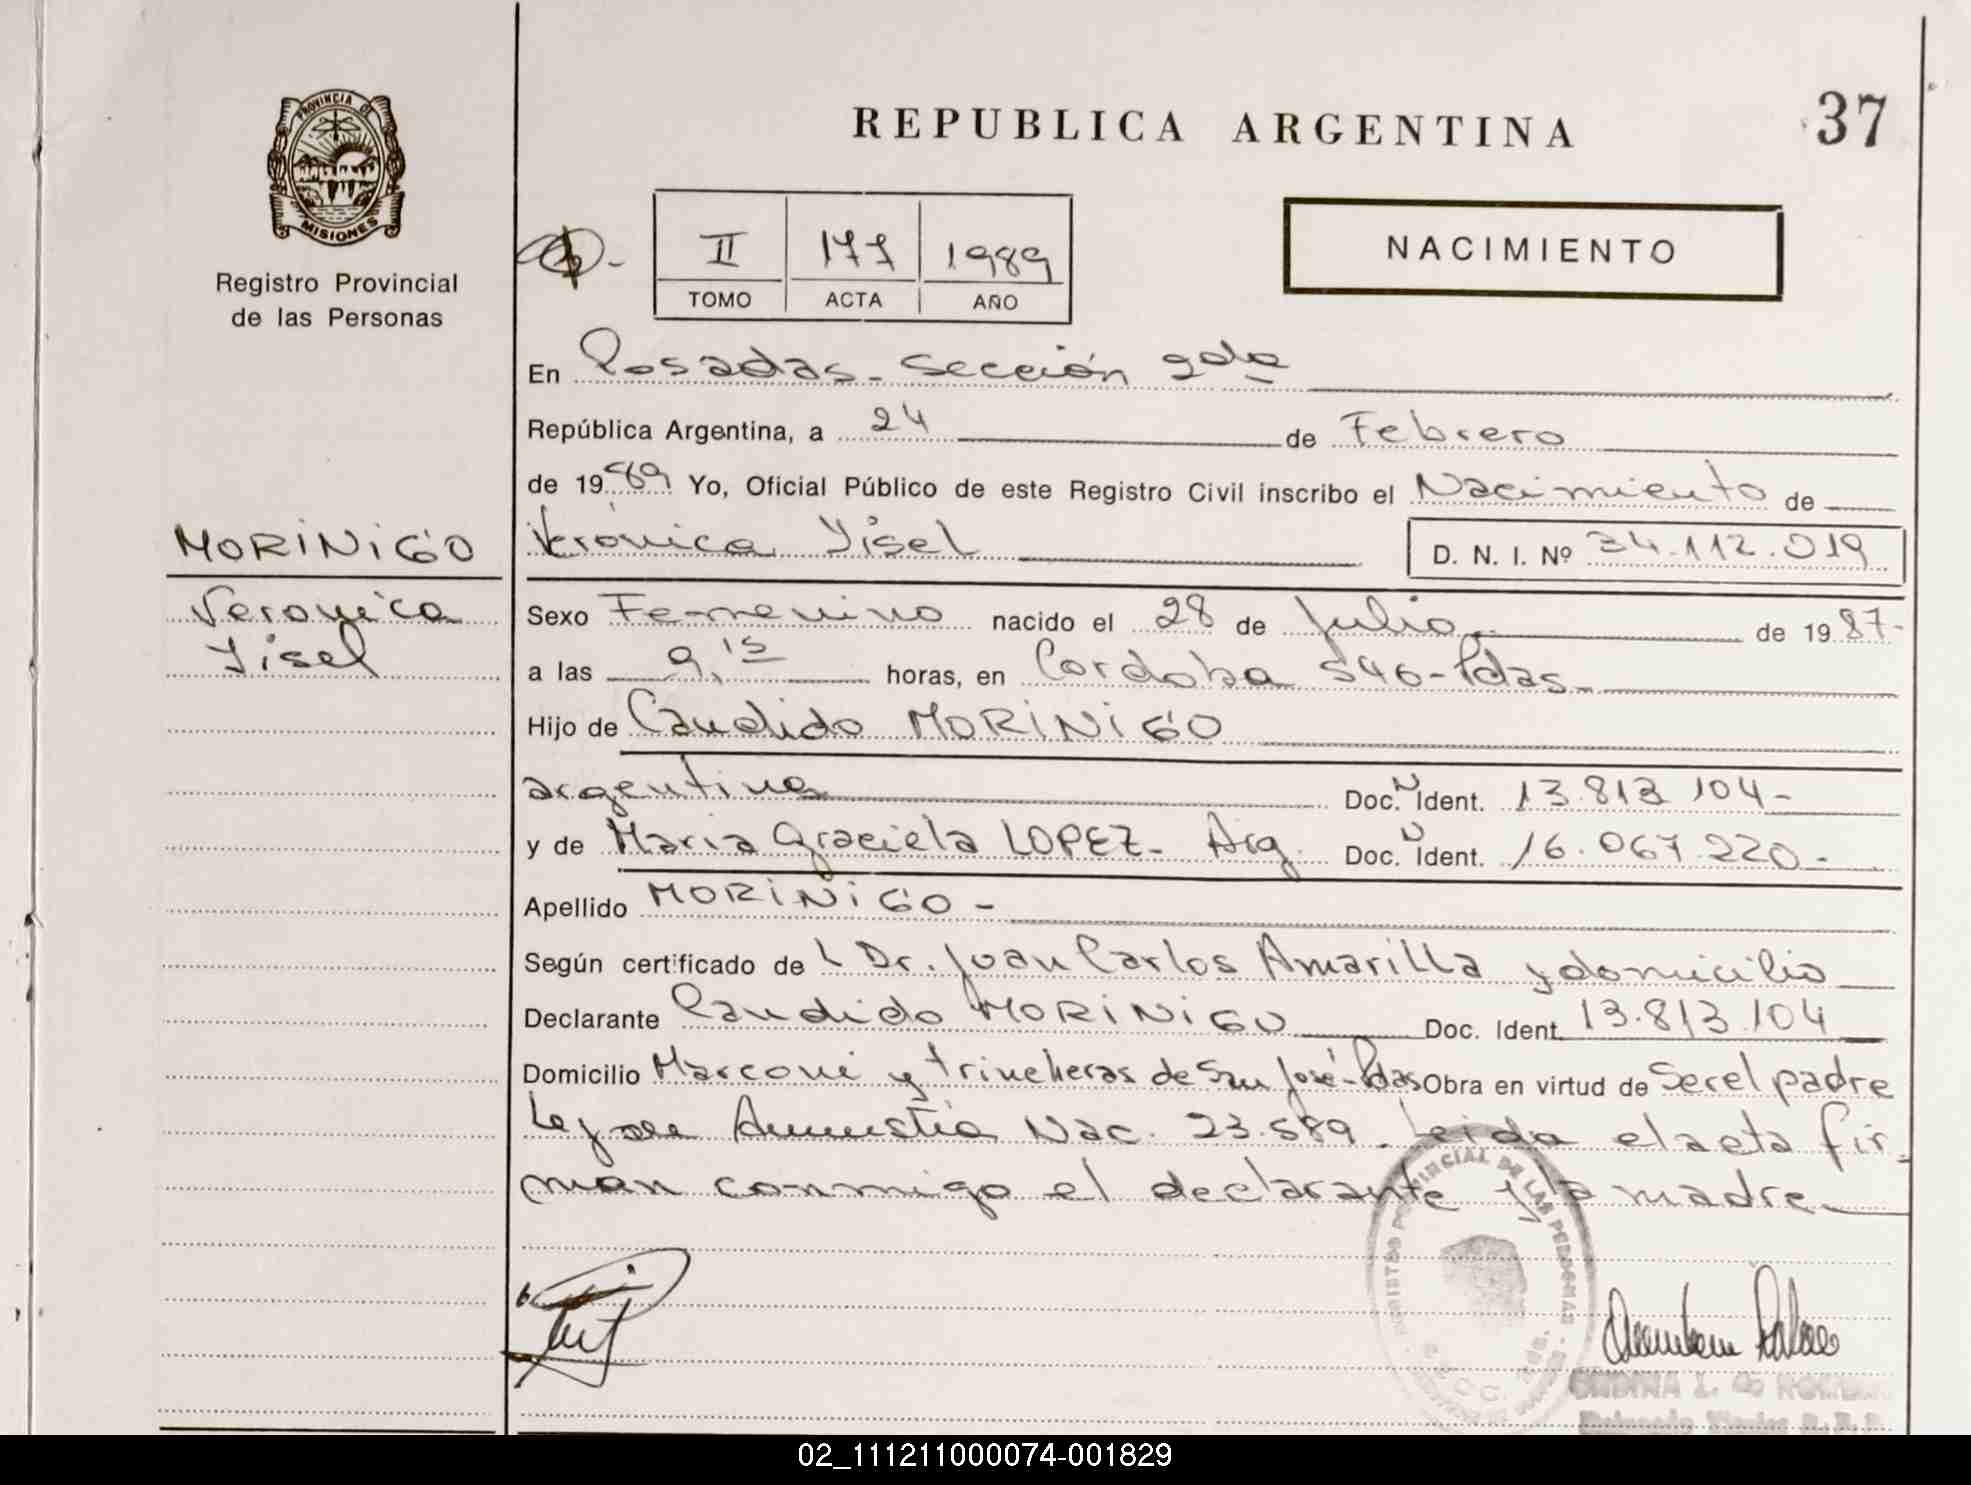 37
REPUBLICA ARGENTINA
PROVINCIA DE
MISIONES
Registro Provincial
de las Personas
II 177 1989
TOMO ACTA AÑO
NACIMIENTO
En Posadas - Sección 2da
República Argentina, a 24 de Febrero
de 1989 Yo, Oficial Público de este Registro Civil inscribo el Nacimiento de
MORINIGO
Veronica Yisel
Verónica Yisel D. N. I. Nº 34.112.019
Sexo Femenino nacido el 28 de Julio de 1987-
a las 9,15 horas, en Cordoba 546-Pdas-
Hijo de Candido MORINIGO
argentina Doc. N Ident. 13.813 104-
y de Maria Graciela LOPEZ- Arg. Doc. N Ident. 16.067.220-
Apellido MORINIGO -
Según certificado de L Dr. Juan Carlos Amarilla y domicilio
Declarante Candido MORINIGO Doc. Ident. 13.813.104
Domicilio Marconi y trincheras de San José-Pdas Obra en virtud de Ser el padre
Ley de Amnistia Nac. 23.589. Leida el acta fir-
man conmigo el declarante y la madre
REGISTRO PROVINCIAL DE LAS PERSONAS
02_111211000074-001829